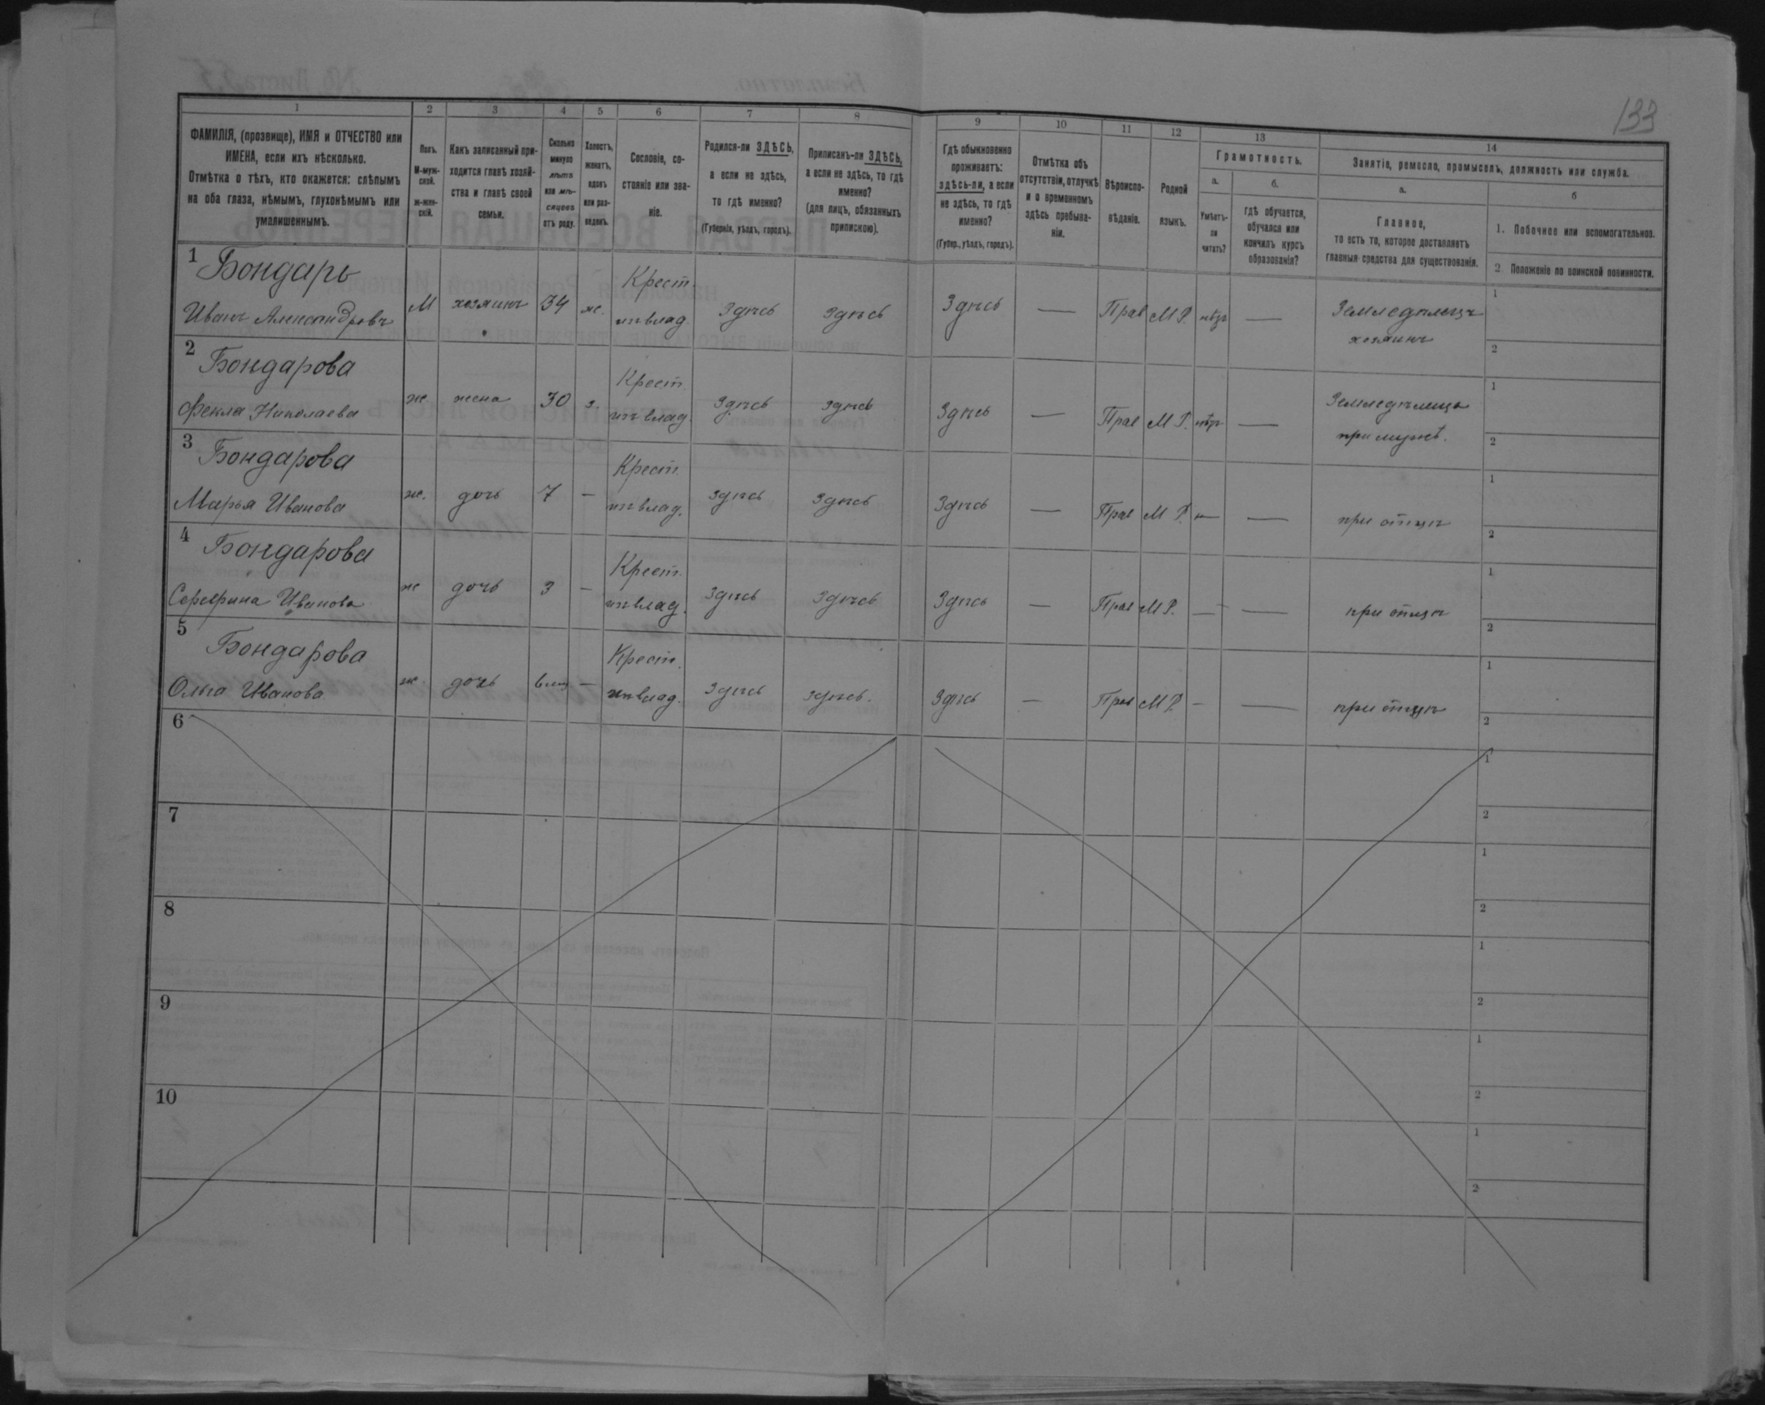 133
1
2
3
4
5
6
7
8
9
10
11
12
13
14
ФАМИЛІЯ, (прозвище), ИМЯ и ОТЧЕСТВО или
ИМЕНА, если ихъ нѣсколько.
Отмѣтка о тѣхъ, кто окажется: слѣпымъ
на оба глаза, нѣмымъ, глухонѣмымъ или
умалишеннымъ.
Полъ.
М-муж-
ской.
ж-жен-
скій.
Какъ записанный при-
ходится главѣ хозяй-
ства и главѣ своей
семьи.
Сколько
минуло
лѣтъ
или мѣ-
сяцевъ
отъ роду.
Холостъ,
женатъ,
вдовъ
или раз-
веденъ.
Сословіе, со-
стояніе или зва-
ніе.
Родился-ли ЗДѢСЬ,
а если не здѣсь,
то гдѣ именно?
(Губернія, уѣздъ, городъ).
Приписанъ-ли ЗДѢСЬ,
а если не здѣсь, то гдѣ
именно?
(для лицъ, обязанныхъ
припискою).
Гдѣ обыкновенно
проживаетъ:
здѣсь-ли, а если
не здѣсь, то гдѣ
именно?
(Губер., уѣздъ, городъ).
Отмѣтка объ
отсутствіи, отлучкѣ
и о временномъ
здѣсь пребыва-
ніи.
Вѣроиспо-
вѣданіе.
Родной
языкъ.
Грамотность.
а.
Умѣетъ-
ли
читать?
б.
гдѣ обучается,
обучался или
кончилъ курсъ
образованія?
Занятіе, ремесло, промыселъ, должность или служба.
а.
Главное,
то есть то, которое доставляетъ
главныя средства для существованія.
б
1. Побочное или вспомогательное.
2. Положеніе по воинской повинности.
1 Бондарь
Иванъ Александровъ М хозяинъ 34 ж. Крест. из влад. Здѣсь Здѣсь Здѣсь — Прав М Р. нѣтъ — Земледѣлецъ хозяинъ 1 2
2 Бондарова
Фекла Николаева ж жена 30 з. Крест. из влад. Здѣсь здѣсь Здѣсь — Прав М Р. нѣтъ — Земледѣлица при мужѣ. 1 2
3 Бондарова
Марья Иванова ж. дочь 7 — Крест. из влад. здѣсь здѣсь Здѣсь — Прав М Р. — при отцѣ 1 2
4 Бондарова
Иванова ж дочь 3 — Крест. из влад. здѣсь здѣсь Здѣсь — Прав М Р. — — при отцѣ 1 2
5 Бондарова
Ольга Иванова ж дочь — Крест. из влад. здѣсь здѣсь. Здѣсь — Прав М Р. — — при отцѣ 1 2
6 1 2
7 1 2
8 1 2
9 1 2
10 1 2